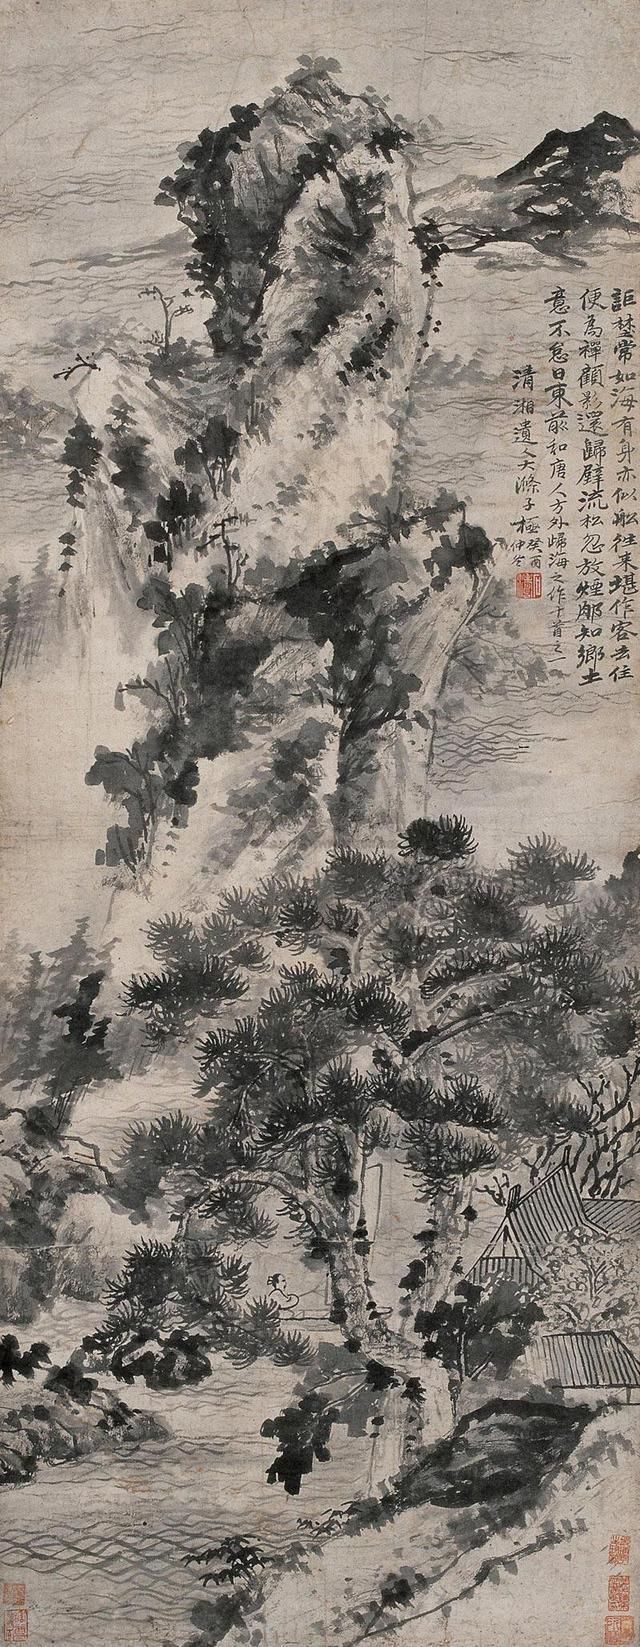 詎墊常如海有身亦似船往来堪作客去住
便為禪顧影還歸壁流松忽放煙那知鄉土
意不怠日東㪅和唐人方外歸海之作十首之一
清湘遺人大滌子極癸酉
仲冬